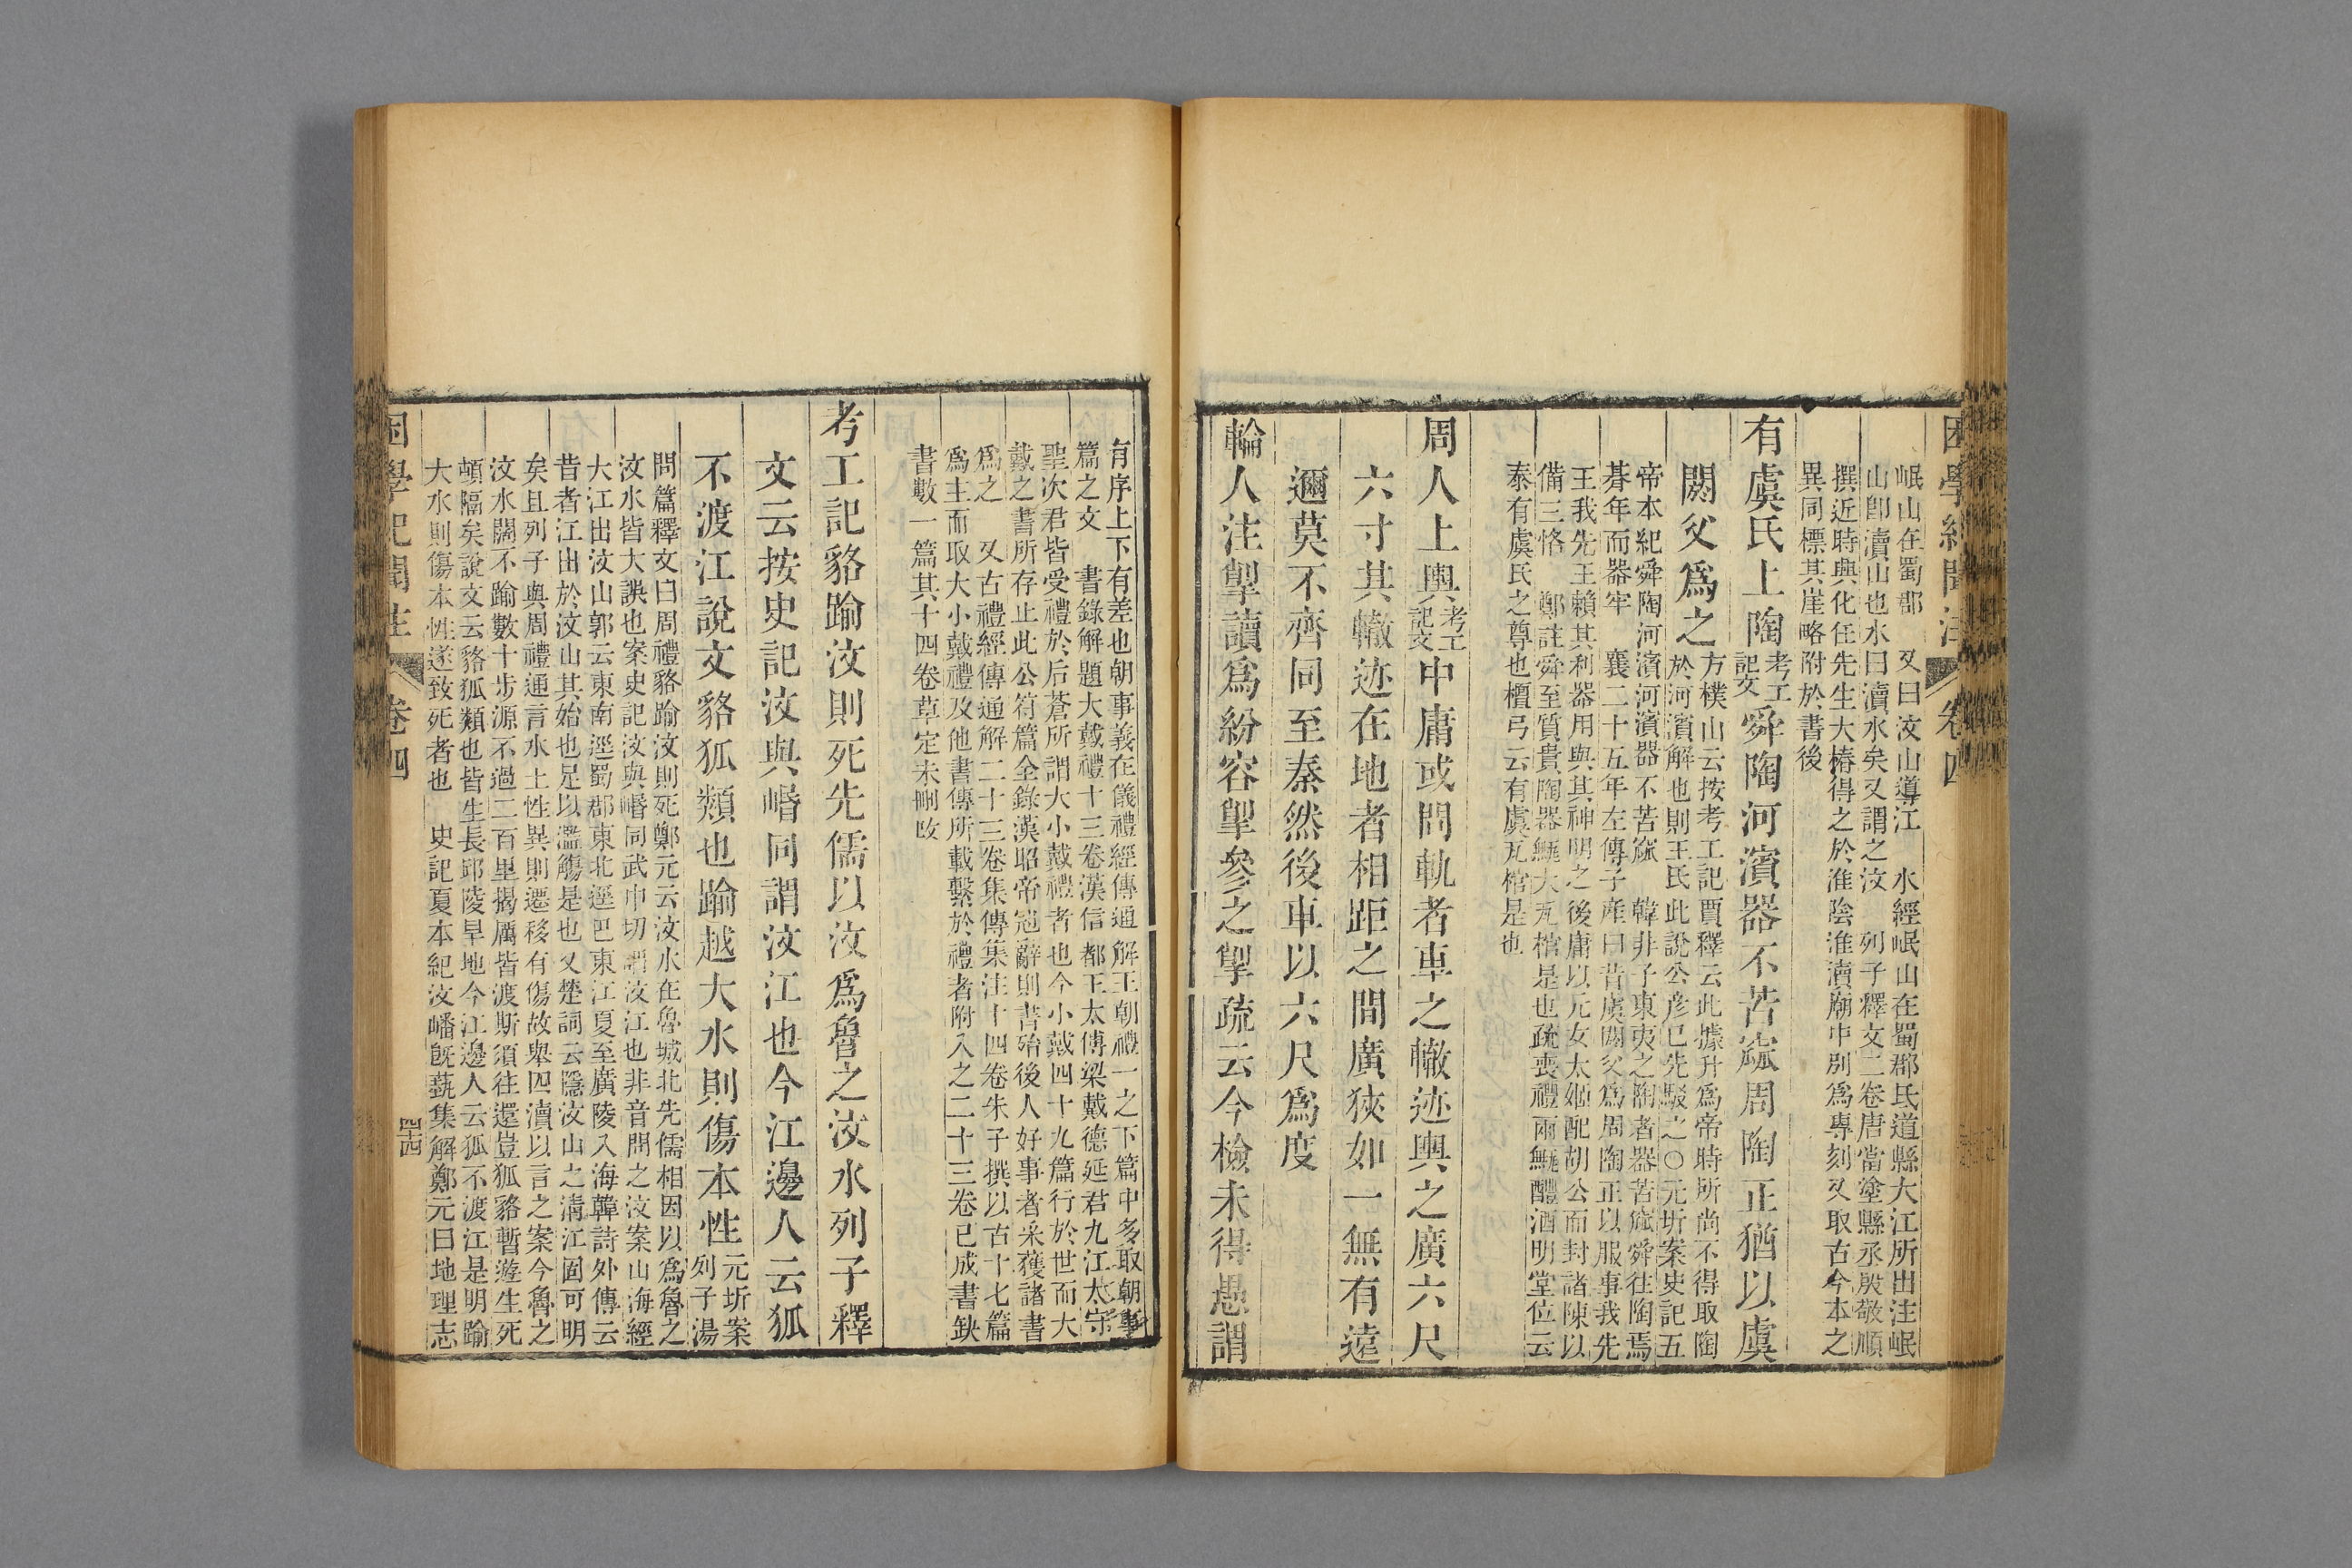 困學紀聞注 卷四
岷山在蜀郡 又曰汶山導江 水經岷山在蜀郡氐道縣大江所出注岷
山卽瀆山也水曰瀆水矣又謂之汶 列子釋文二卷唐當塗縣丞殷敬順
撰近時興化任先生大椿得之於淮陰淮瀆廟中別爲專刻又取古今本之
異同標其崖略附於書後
有虞氏上陶考工記文舜陶河濱器不苦窳周陶正猶以虞
閼父爲之方樸山云按考工記賈釋云此據升爲帝時所尚不得取陶
於河濱解也則王氏此說公彥已先駁之○元圻案史記五
帝本紀舜陶河濱河濱器不苦窳 韓非子東夷之陶者器苦窳舜往陶焉
朞年而器牢 襄二十五年左傳子產曰昔虞閼父爲周陶正以服事我先
王我先王賴其利器用與其神明之後庸以元女太姬配胡公而封諸陳以
備三恪 鄭註舜至質貴陶器甒大瓦棺是也疏喪禮兩甒醴酒明堂位云
泰有虞氏之尊也檀弓云有虞瓦棺是也
周人上輿考工記文中庸或問軌者車之轍迹輿之廣六尺
六寸其轍迹在地者相距之間廣狹如一無有遠
邇莫不齊同至秦然後車以六尺爲度
輪人注掣讀爲紛容掣參之掣疏云今檢未得愚謂
有序上下有差也朝事義在儀禮經傳通解王朝禮一之下篇中多取朝事
篇之文 書錄解題大戴禮十三卷漢信都王太傅梁戴德延君九江太守
聖次君皆受禮於后蒼所謂大小戴禮者也今小戴四十九篇行於世而大
戴之書所存止此公符篇全錄漢昭帝冠辭則書殆後人好事者采獲諸書
爲之 又古禮經傳通解二十三卷集傳集注十四卷朱子撰以古十七篇
爲主而取大小戴禮及他書傳所載繫於禮者附入之二十三卷已成書缺
書數一篇其十四卷草定未刪改
考工記貉踰汶則死先儒以汶爲魯之汶水列子釋
文云按史記汶與㟭同謂汶江也今江邊人云狐
不渡江說文貉狐類也踰越大水則傷本性元圻案列子湯
問篇釋文曰周禮貉踰汶則死鄭元云汶水在魯城北先儒相因以爲魯之
汶水皆大誤也案史記汶與㟭同武巾切謂汶江也非音問之汶案山海經
大江出汶山郭云東南逕蜀郡東北逕巴東江夏至廣陵入海韓詩外傳云
昔者江出於汶山其始也足以濫觴是也又楚詞云隱汶山之淸江固可明
矣且列子與周禮通言水土性異則遷移有傷故舉四瀆以言之案今魯之
汶水闊不踰數十步源不過二百里揭厲皆渡斯須往還豈狐貉暫遊生死
頓隔矣說文云貉狐類也皆生長邱陵旱地今江邊人云狐不渡江是明踰
大水則傷本性遂致死者也 史記夏本紀汶嶓旣蓺集解鄭元曰地理志
困學紀聞注 卷四